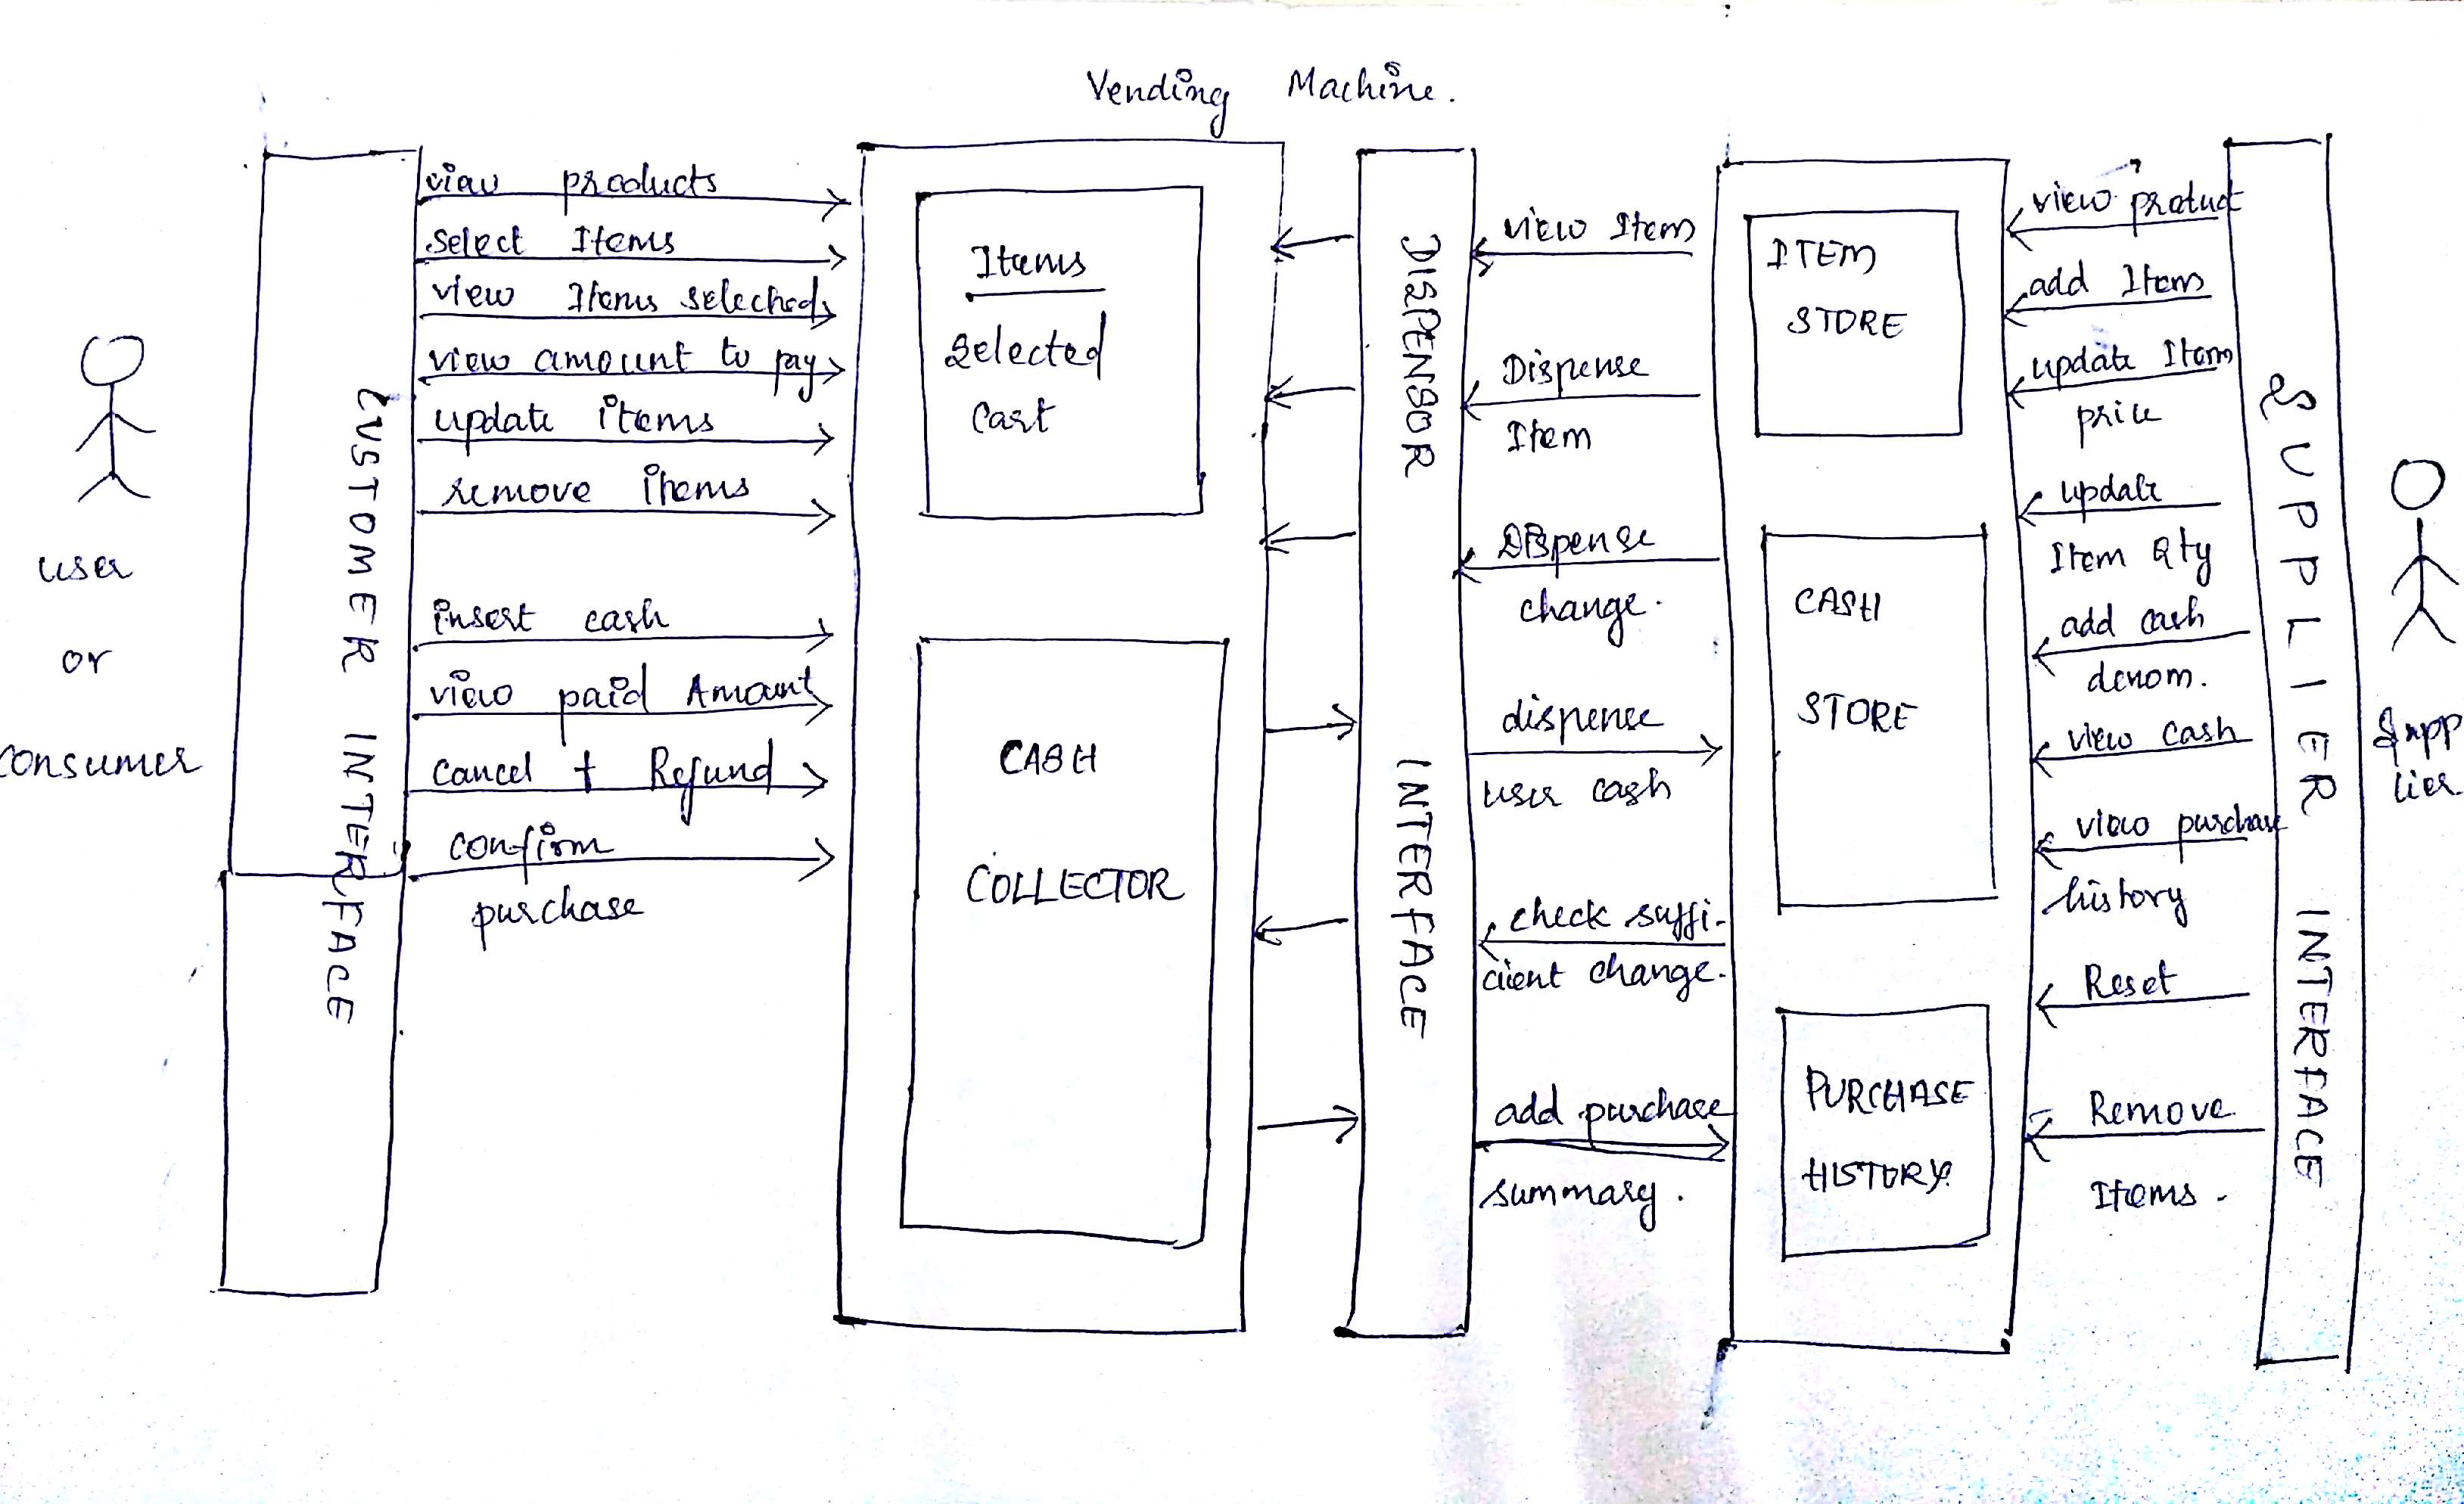 Vending Machine.
user
or
consumer
CUSTOMER INTERFACE
view products
select Items
view Items selected
view amount to pay
update items
remove items
insert cash
view paid Amount
cancel + Refund
confirm
purchase
Items
Selected
Cart
CASH
COLLECTOR
DISPENSOR INTERFACE
view Item
Dispense
Item
Dispense
change.
dispense
user cash
check suffi-
cient change.
add purchase
summary.
ITEM
STORE
CASH
STORE
PURCHASE
HISTORY
view product
add Item
update Item
price
update
Item Qty
add cash
denom.
view cash
view purchase
history
Reset
Remove
Items.
SUPPLIER INTERFACE
Supp
lier